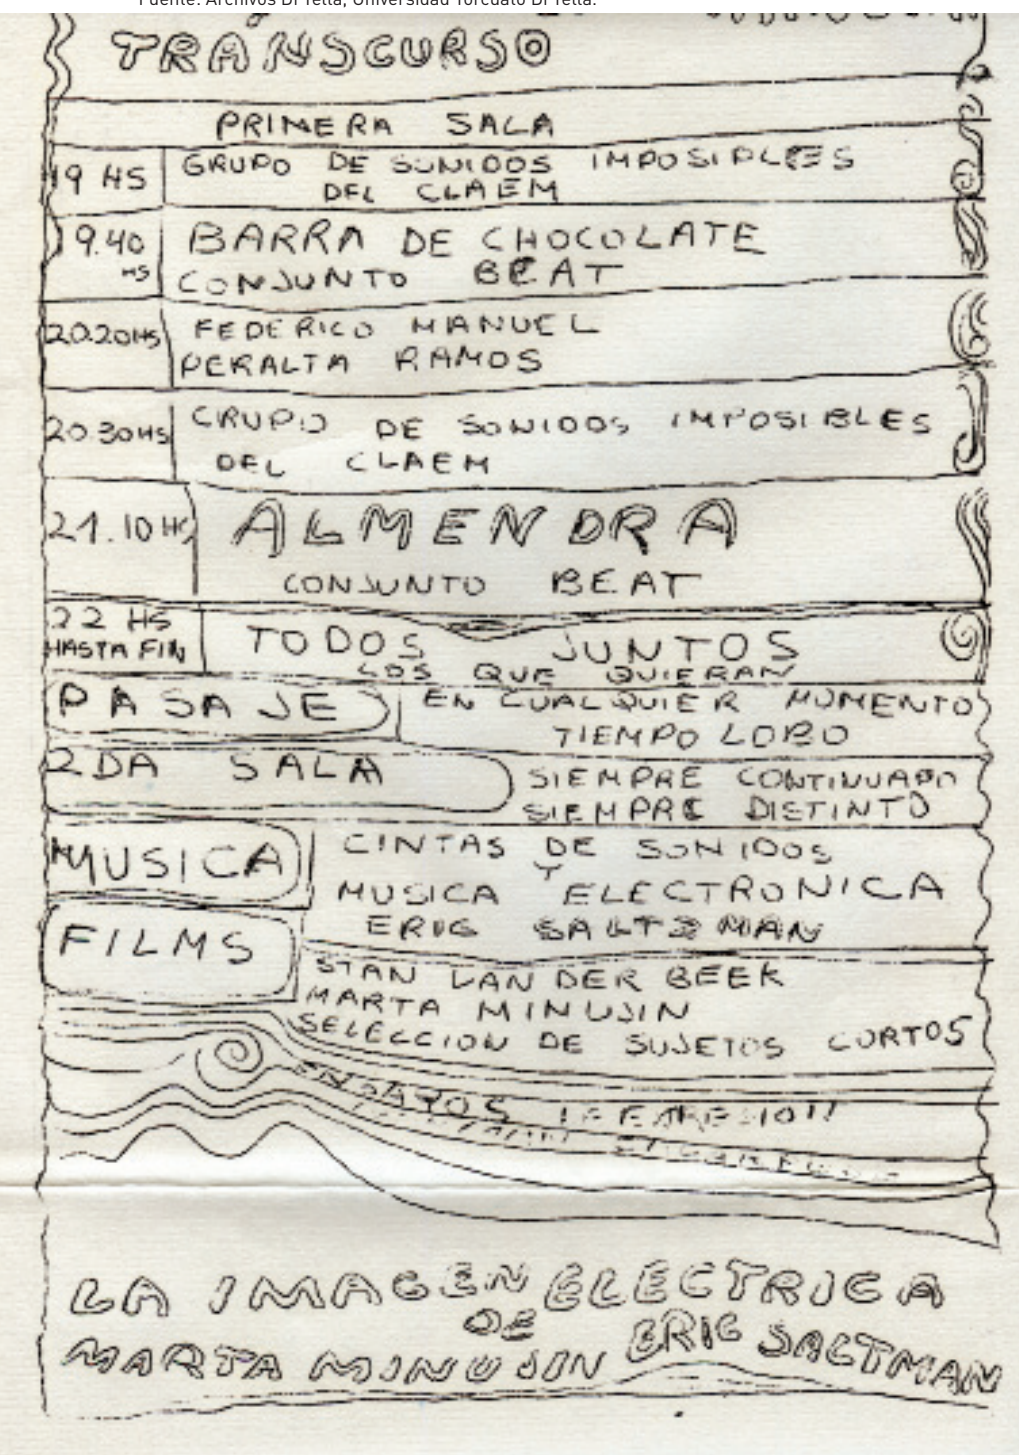 Fuente: Archivos Di Tella, Universidad Torcuato Di Tella.
TRANSCURSO
PRIMERA SALA
19 HS GRUPO DE SONIDOS IMPOSIBLES
DEL CLAEM
19.40 HS BARRA DE CHOCOLATE
CONJUNTO BEAT
20.20 HS FEDERICO MANUEL
PERALTA RAMOS
20.30 HS GRUPO DE SONIDOS IMPOSIBLES
DEL CLAEM
21.10 HS ALMENDRA
CONJUNTO BEAT
22 HS
HASTA FIN TODOS JUNTOS
LOS QUE QUIERAN
PASAJE EN CUALQUIER MOMENTO
TIEMPO LOBO
2DA SALA SIEMPRE CONTINUADO
SIEMPRE DISTINTO
MUSICA CINTAS DE SONIDOS
Y
MUSICA ELECTRONICA
ERIC SALTZMAN
FILMS
STAN VAN DER BEEK
MARTA MINUJIN
SELECCION DE SUJETOS CORTOS
LA IMAGEN ELECTRICA
DE
MARTA MINUJIN ERIC SALTMAN